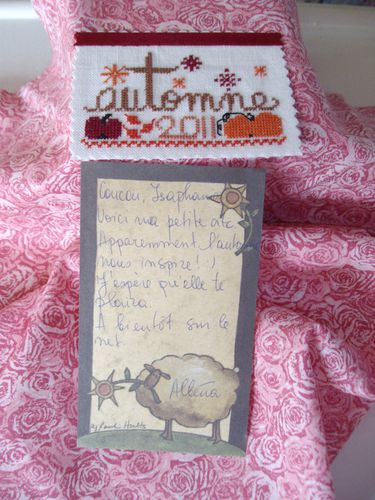 automne
2011
Coucou, Isaphane
Voici ma petite atc
Apparemment l'automne
nous inspire! :)
J'espère qu'elle te
plaira.
A bientôt sur le
net.
Allena
By